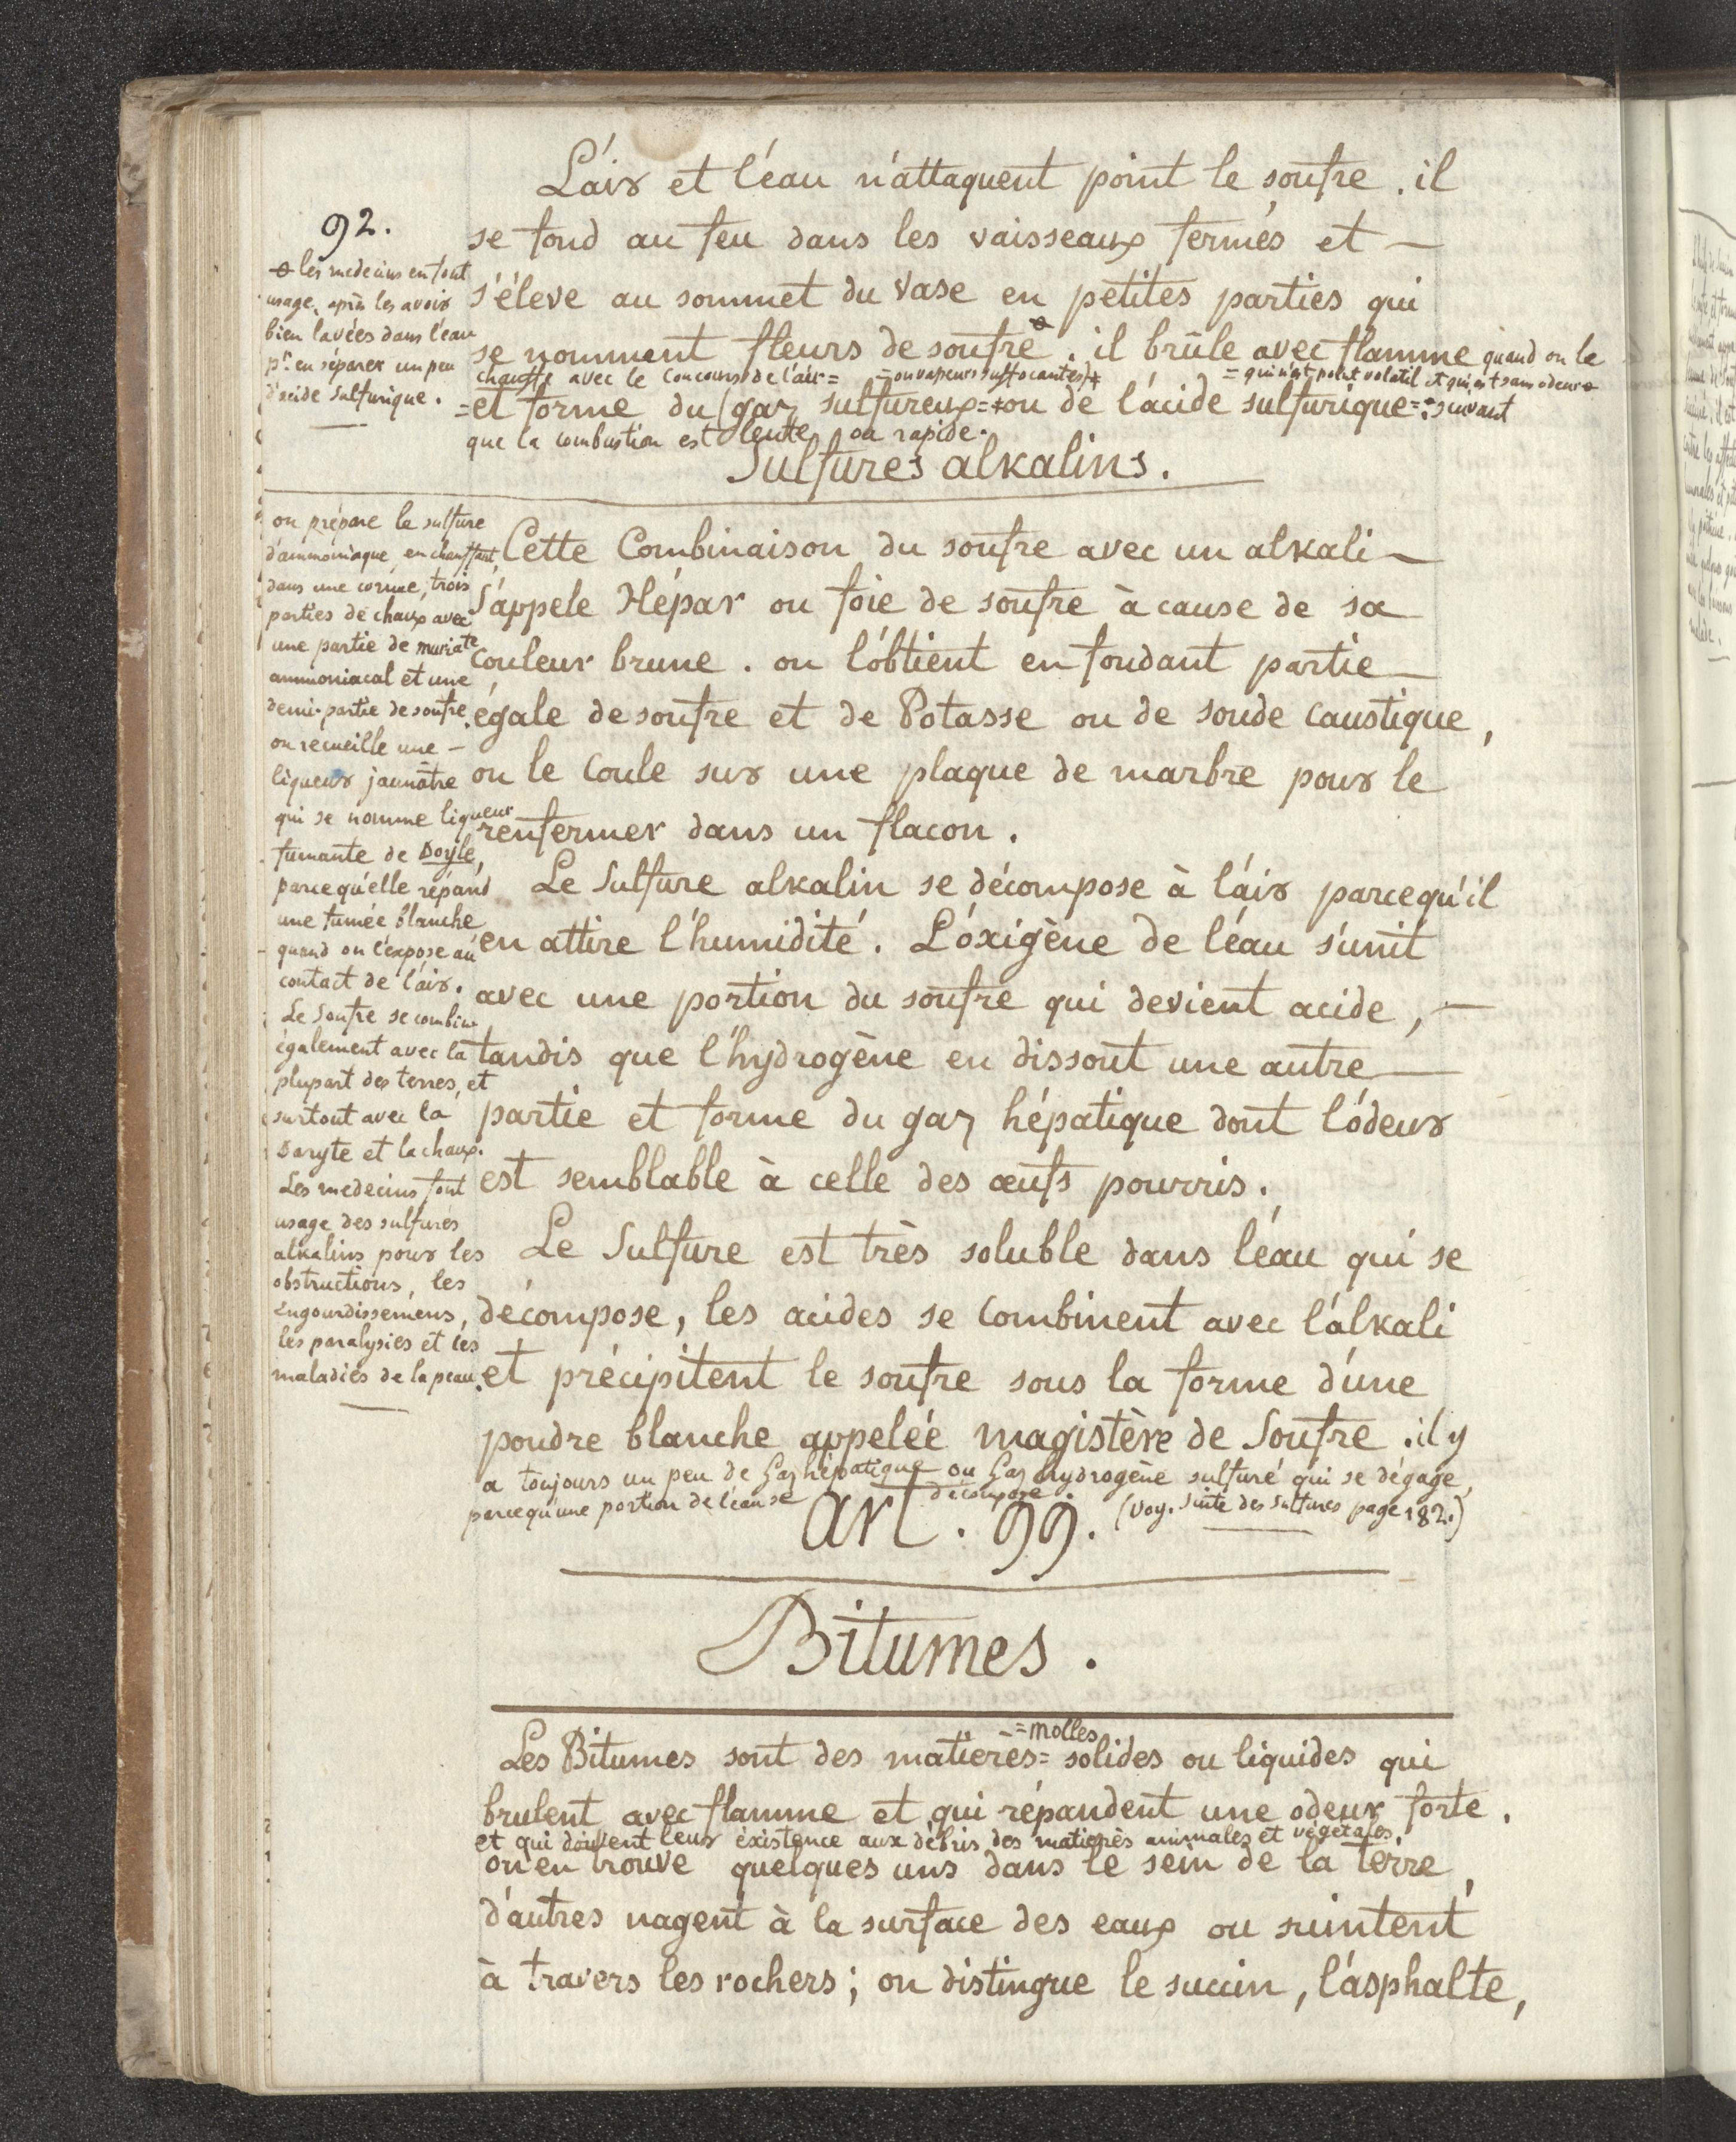 L'air et l'éau n'attaquent point le soufre. il
92.
se fond au feu dans les vaisseaux fermés et —
s'éleve au sommet du vase en petites parties qui
se nomment fleurs de soufre ⊖. il brûle avec flamme quand on le
chauffe avec le concours de l'air = = ou vapeurs suffocantes)+ = qui n'est point volatil et qui est sans odeur
= et forme du (gaz sulfureux = + ou de l'acide sulfurique = : suivant
que la combustion est lente ou rapide.
⊖ les medecins en font
usage, après les avoir
bien lavées dans l'éau
pr. en séparer un peu
d'acide sulfurique.
Sulfures alkalins.
Cette Combinaison du soufre avec un alkali —
s'appele Hépar ou foie de soufre à cause de sa
couleur brune. on l'obtient en fondant partie —
égale de soufre et de Potasse ou de soude caustique,
on le coule sur une plaque de marbre pour le
renfermer dans un flacon.
Le Sulfure alkalin se décompose à l'air parcequ'il
en attire l'humidité. L'oxigène de l'éau s'unit
avec une portion du soufre qui devient acide, —
tandis que l'hydrogène en dissout une autre —
partie et forme du gaz hépatique dont l'odeur
est semblable à celle des œufs pourris.
Le Sulfure est très soluble dans l'éau qui se
décompose, les acides se combinent avec l'alkali
et précipitent le soufre sous la forme d'une
poudre blanche appelée magistère de Soufre. il y
a toujours un peu de Gaz hépatique ou Gaz hydrogène sulfuré qui se dégage,
parcequ'une portion de l'eau se décompose. (Voy. suite des sulfures page 182.)
on prépare le sulfure
d'ammoniaque, en chauffant,
dans une cornue, trois
parties de chaux avec
une partie de muriate
ammoniacal et une
demi-partie de soufre.
on recueille une —
liqueur jaunâtre
qui se nomme liqueur
fumante de Boyle,
parcequ'elle répand
une fumée blanche
quand on l'expose au
contact de l'air.
Le Soufre se combine
également avec la
plupart des terres, et
surtout avec la
Baryte et la chaux.
Les medecins font
usage des sulfures
alkalins pour les
obstructions, les
Engourdissemens,
les paralysies et les
maladies de la peau.
art. 99.
Bitumes.
Les Bitumes sont des matières = = molles solides ou liquides qui
brulent avec flamme et qui répandent une odeur forte.
et qui doivent leur éxistence aux débris des matières animales et végétales.
on en trouve quelques uns dans le sein de la terre,
d'autres nagent à la surface des eaux ou suintent
à travers les rochers; on distingue le succin, l'asphalte,